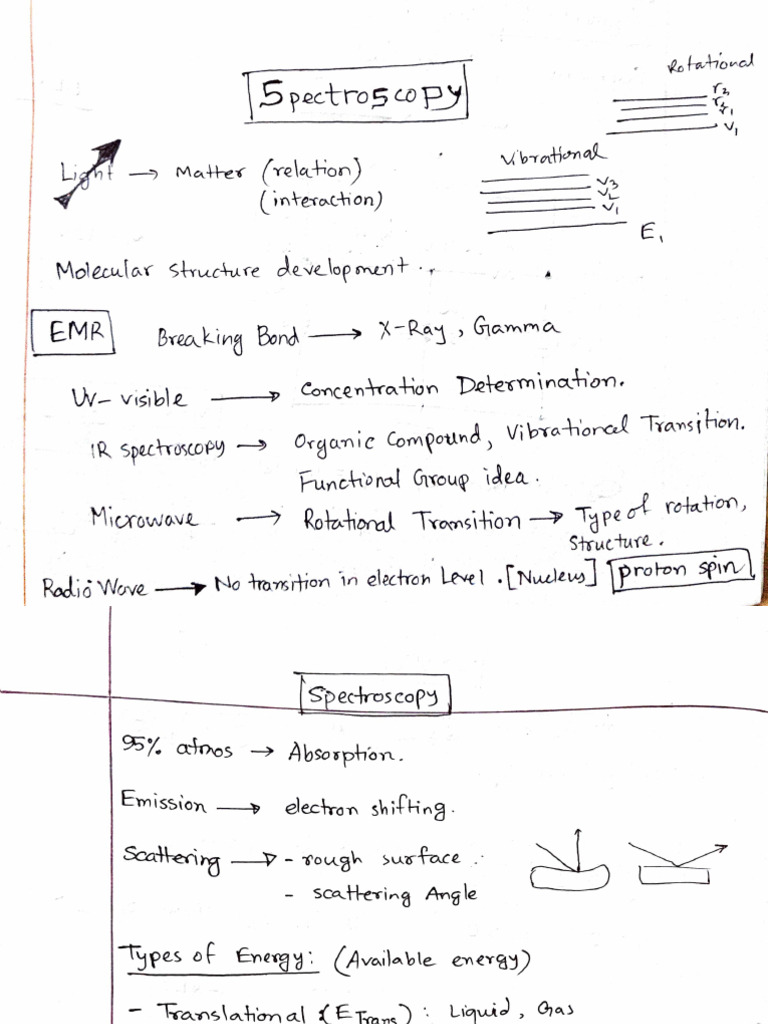 Spectroscopy
Rotational
r3
r2
r1
V1
Light → Matter (relation)
(interaction)
Vibrational
V3
V2
V1
E1
Molecular structure development..
EMR
Breaking Bond → X-Ray, Gamma
UV-visible → Concentration Determination.
IR spectroscopy → Organic Compound, Vibrational Transition.
Functional Group idea.
Microwave → Rotational Transition → Type of rotation,
Structure.
Radio Wave → No transition in electron Level. [Nucleus] proton spin
Spectroscopy
95% atmos → Absorption.
Emission → electron shifting.
Scattering → - rough surface
- scattering Angle
Types of Energy: (Available energy)
- Translational {ETrans}: Liquid, Gas